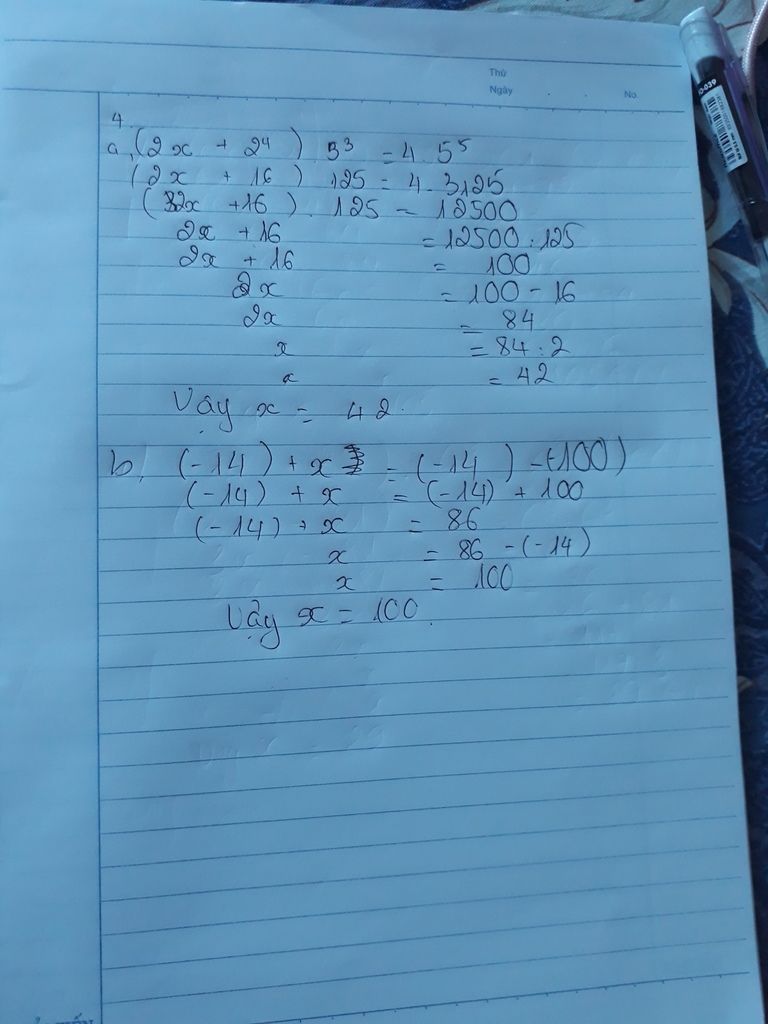 Thứ
Ngày . . No
4.
a, (2x + 2⁴) . 5³ = 4 . 5⁵
(2x + 16) 125 = 4 . 3125
(2x + 16) . 125 = 12500
2x + 16 = 12500 : 125
2x + 16 = 100
2x = 100 - 16
2x = 84
x = 84 : 2
x = 42
Vậy x = 42.
b, (-14) + x = (-14) - (-100)
(-14) + x = (-14) + 100
(-14) + x = 86
x = 86 - (-14)
x = 100
Vậy x = 100.